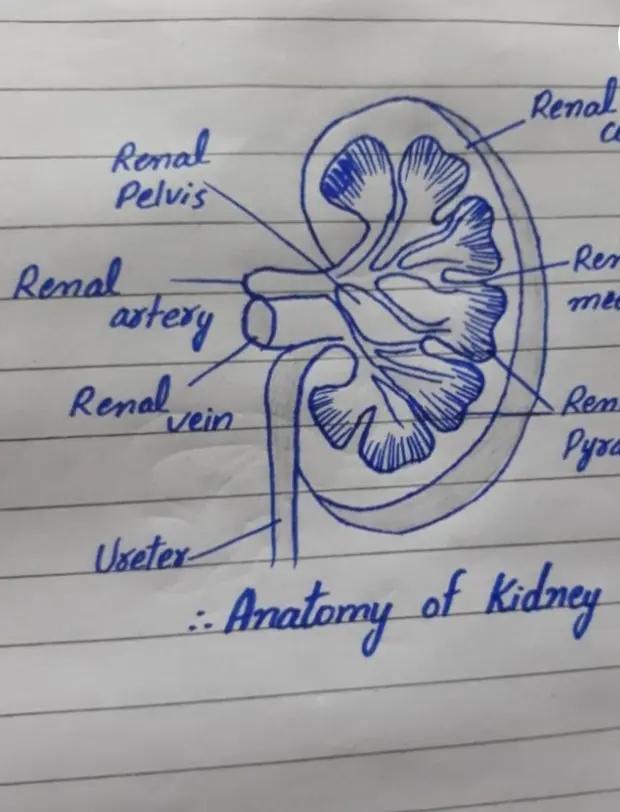 Renal
Renal
Pelvis
Renal
artery
Renal
vein
Ureter
∴ Anatomy of Kidney